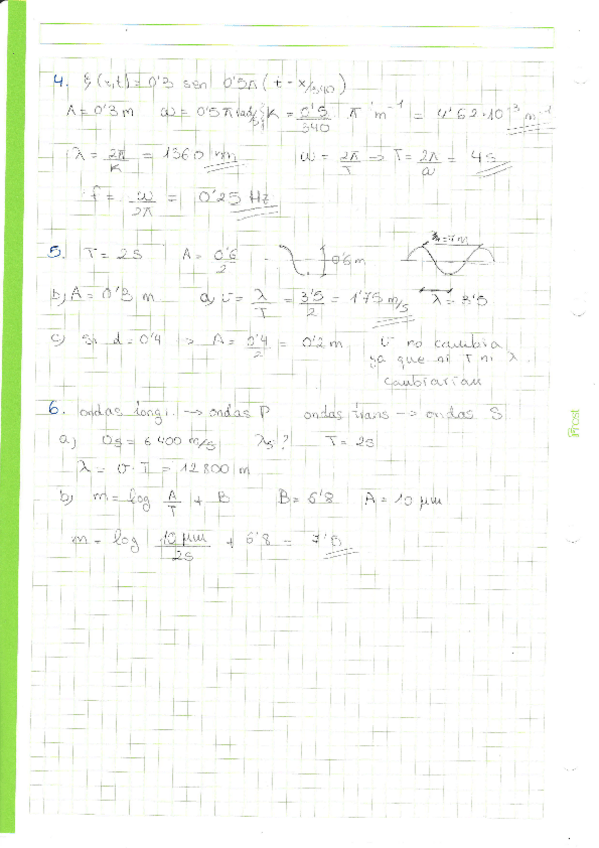 4. ξ(x,t) = 0'3 sen 0'5π (t - x/340)
A = 0'3 m   ω = 0'5π rad/s   K = 0'5/340 π m⁻¹ = 4'62·10⁻³ m⁻¹
λ = 2π/K = 1360 m   ω = 2π/T → T = 2π/ω = 4s
f = ω/2π = 0'25 Hz
5. T = 2s   A = 0'6/2   0'6m
b) A = 0'3 m   a) v = λ/T = 3'5/2 = 1'75 m/s   λ = 3'5
c) Si d = 0'4 → A = 0'4/2 = 0'2 m   v no cambia
ya que ni T ni λ
cambiarían
6. ondas longi. → ondas P   ondas trans → ondas S
a) vs = 6400 m/s   λs?   T = 2s
λ = v · T = 12800 m
b) m = log A/T + B   B = 6'8   A = 10 μm
m = log 10 μm/2s + 6'8 = 7'5
Frost